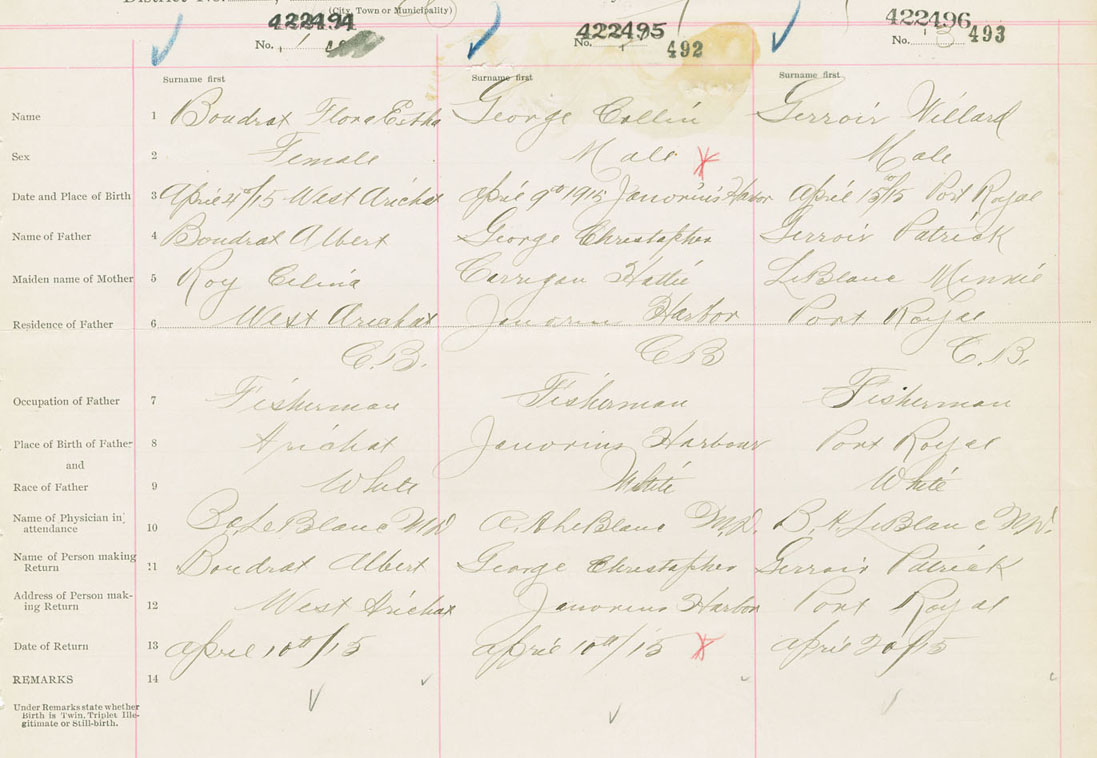 District No.
(City, Town or Municipality)
422494 422495 422496
No. 1 No. 492 No. 3 493
Surname first Surname first Surname first
Name 1 Boudrot Flora Estha George Collin Gerroir Willard
Sex 2 Female Male Male
Date and Place of Birth 3 April 4th/15 West Arichat April 9th 1915 Janvrins Harbor April 15th/15 Port Royal
Name of Father 4 Boudrot Albert George Christopher Gerroir Patrick
Maiden name of Mother 5 Roy Celina Carrigan Hattie LeBlanc Minnie
Residence of Father 6 West Arichat Janvrin Harbor Port Royal
C.B. C B C.B.
Occupation of Father 7 Fisherman Fisherman Fisherman
Place of Birth of Father 8 Arichat Janvrins Harbour Port Royal
and
Race of Father 9 White White White
Name of Physician in attendance 10 LeBlanc M.D. LeBlanc M.D. B. A. LeBlanc M.D.
Name of Person making Return 11 Boudrot Albert George Christopher Gerroir Patrick
Address of Person making Return 12 West Arichat Janvrins Harbor Port Royal
Date of Return 13 April 10th/15 April 10th/15 April 20/15
REMARKS 14
Under Remarks state whether
Birth is Twin, Triplet Ille-
gitimate or Still-birth.